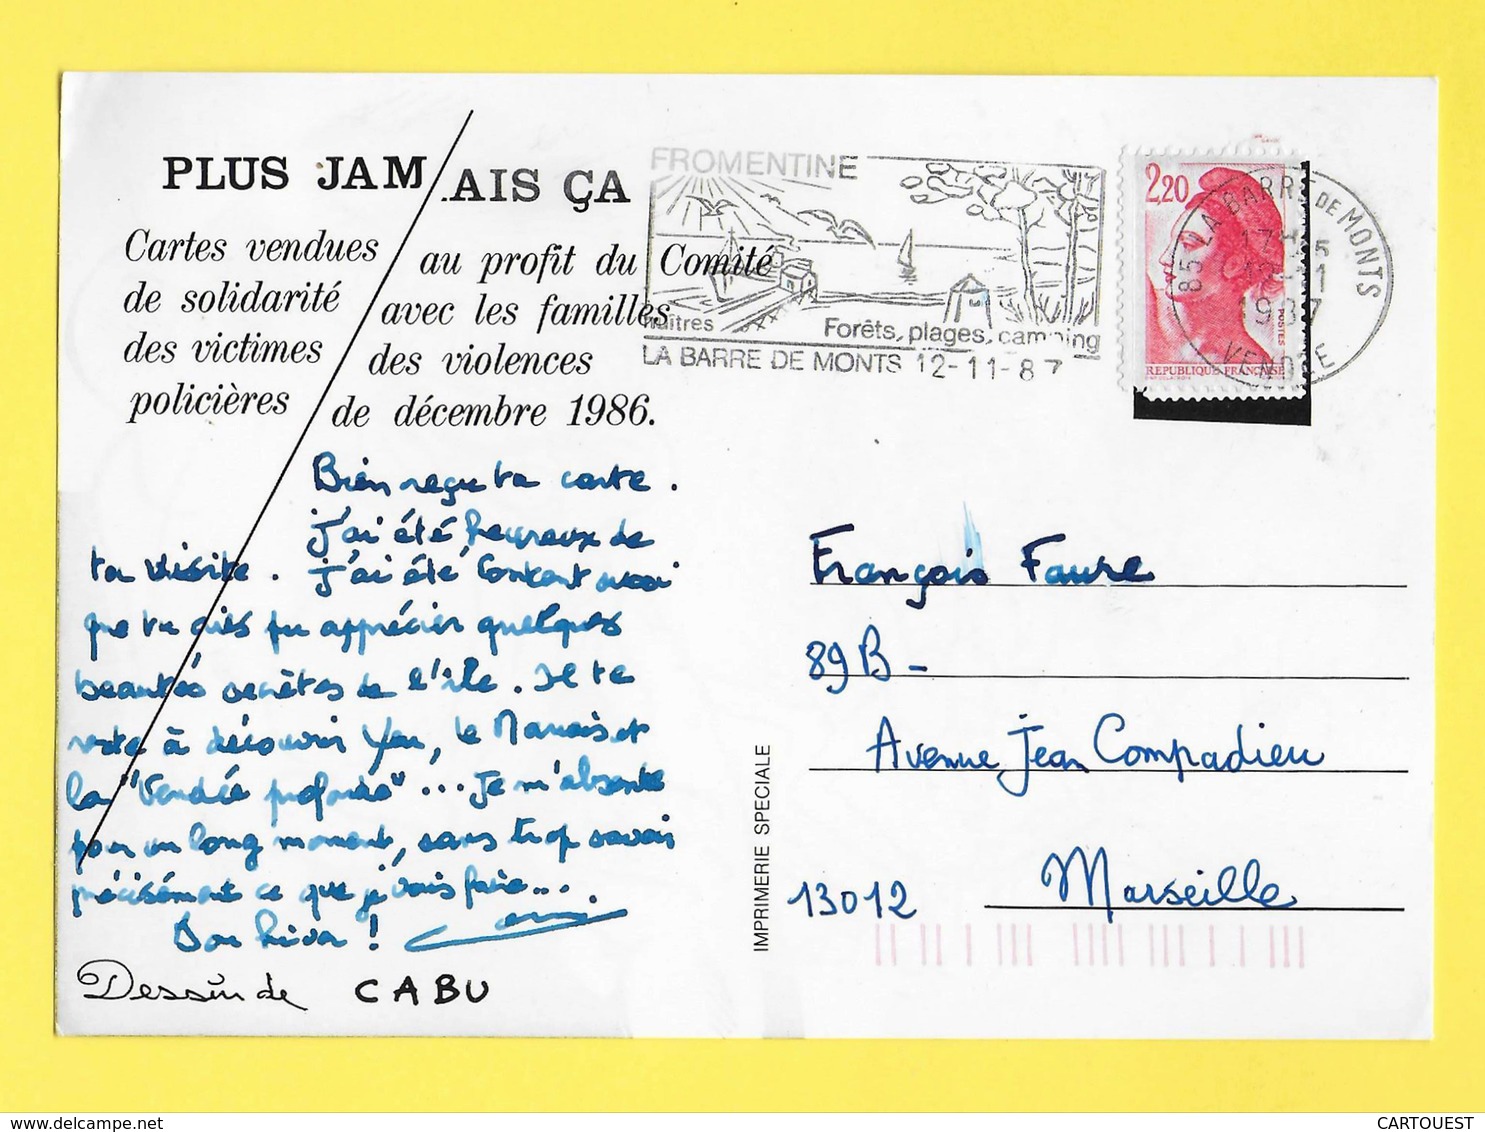 PLUS JAMAIS ÇA
Cartes vendues au profit du Comité
de solidarité avec les familles
des victimes des violences
policières de décembre 1986.
FROMENTINE
huîtres Forêts, plages, camping
LA BARRE DE MONTS 12-11-87
2,20
POSTES
REPUBLIQUE FRANÇAISE
85 LA BARRE DE MONTS
17H15
12-11
1987
VENDEE
Bien reçu ta carte.
J'ai été heureux de
ta visite. J'ai été content aussi
que tu aies pu apprécier quelques
beautés secrètes de l'île. Il te
reste à découvrir Yeu, le Marais et
la "Vendée profonde"... Je m'absente
pour un long moment, sans trop savoir
précisément ce que je vais faire...
Bon hiver !
Dessin de CABU
IMPRIMERIE SPECIALE
François Faure
89B -
Avenue Jean Compadieu
13012 Marseille
delcampe.net
CARTOUEST